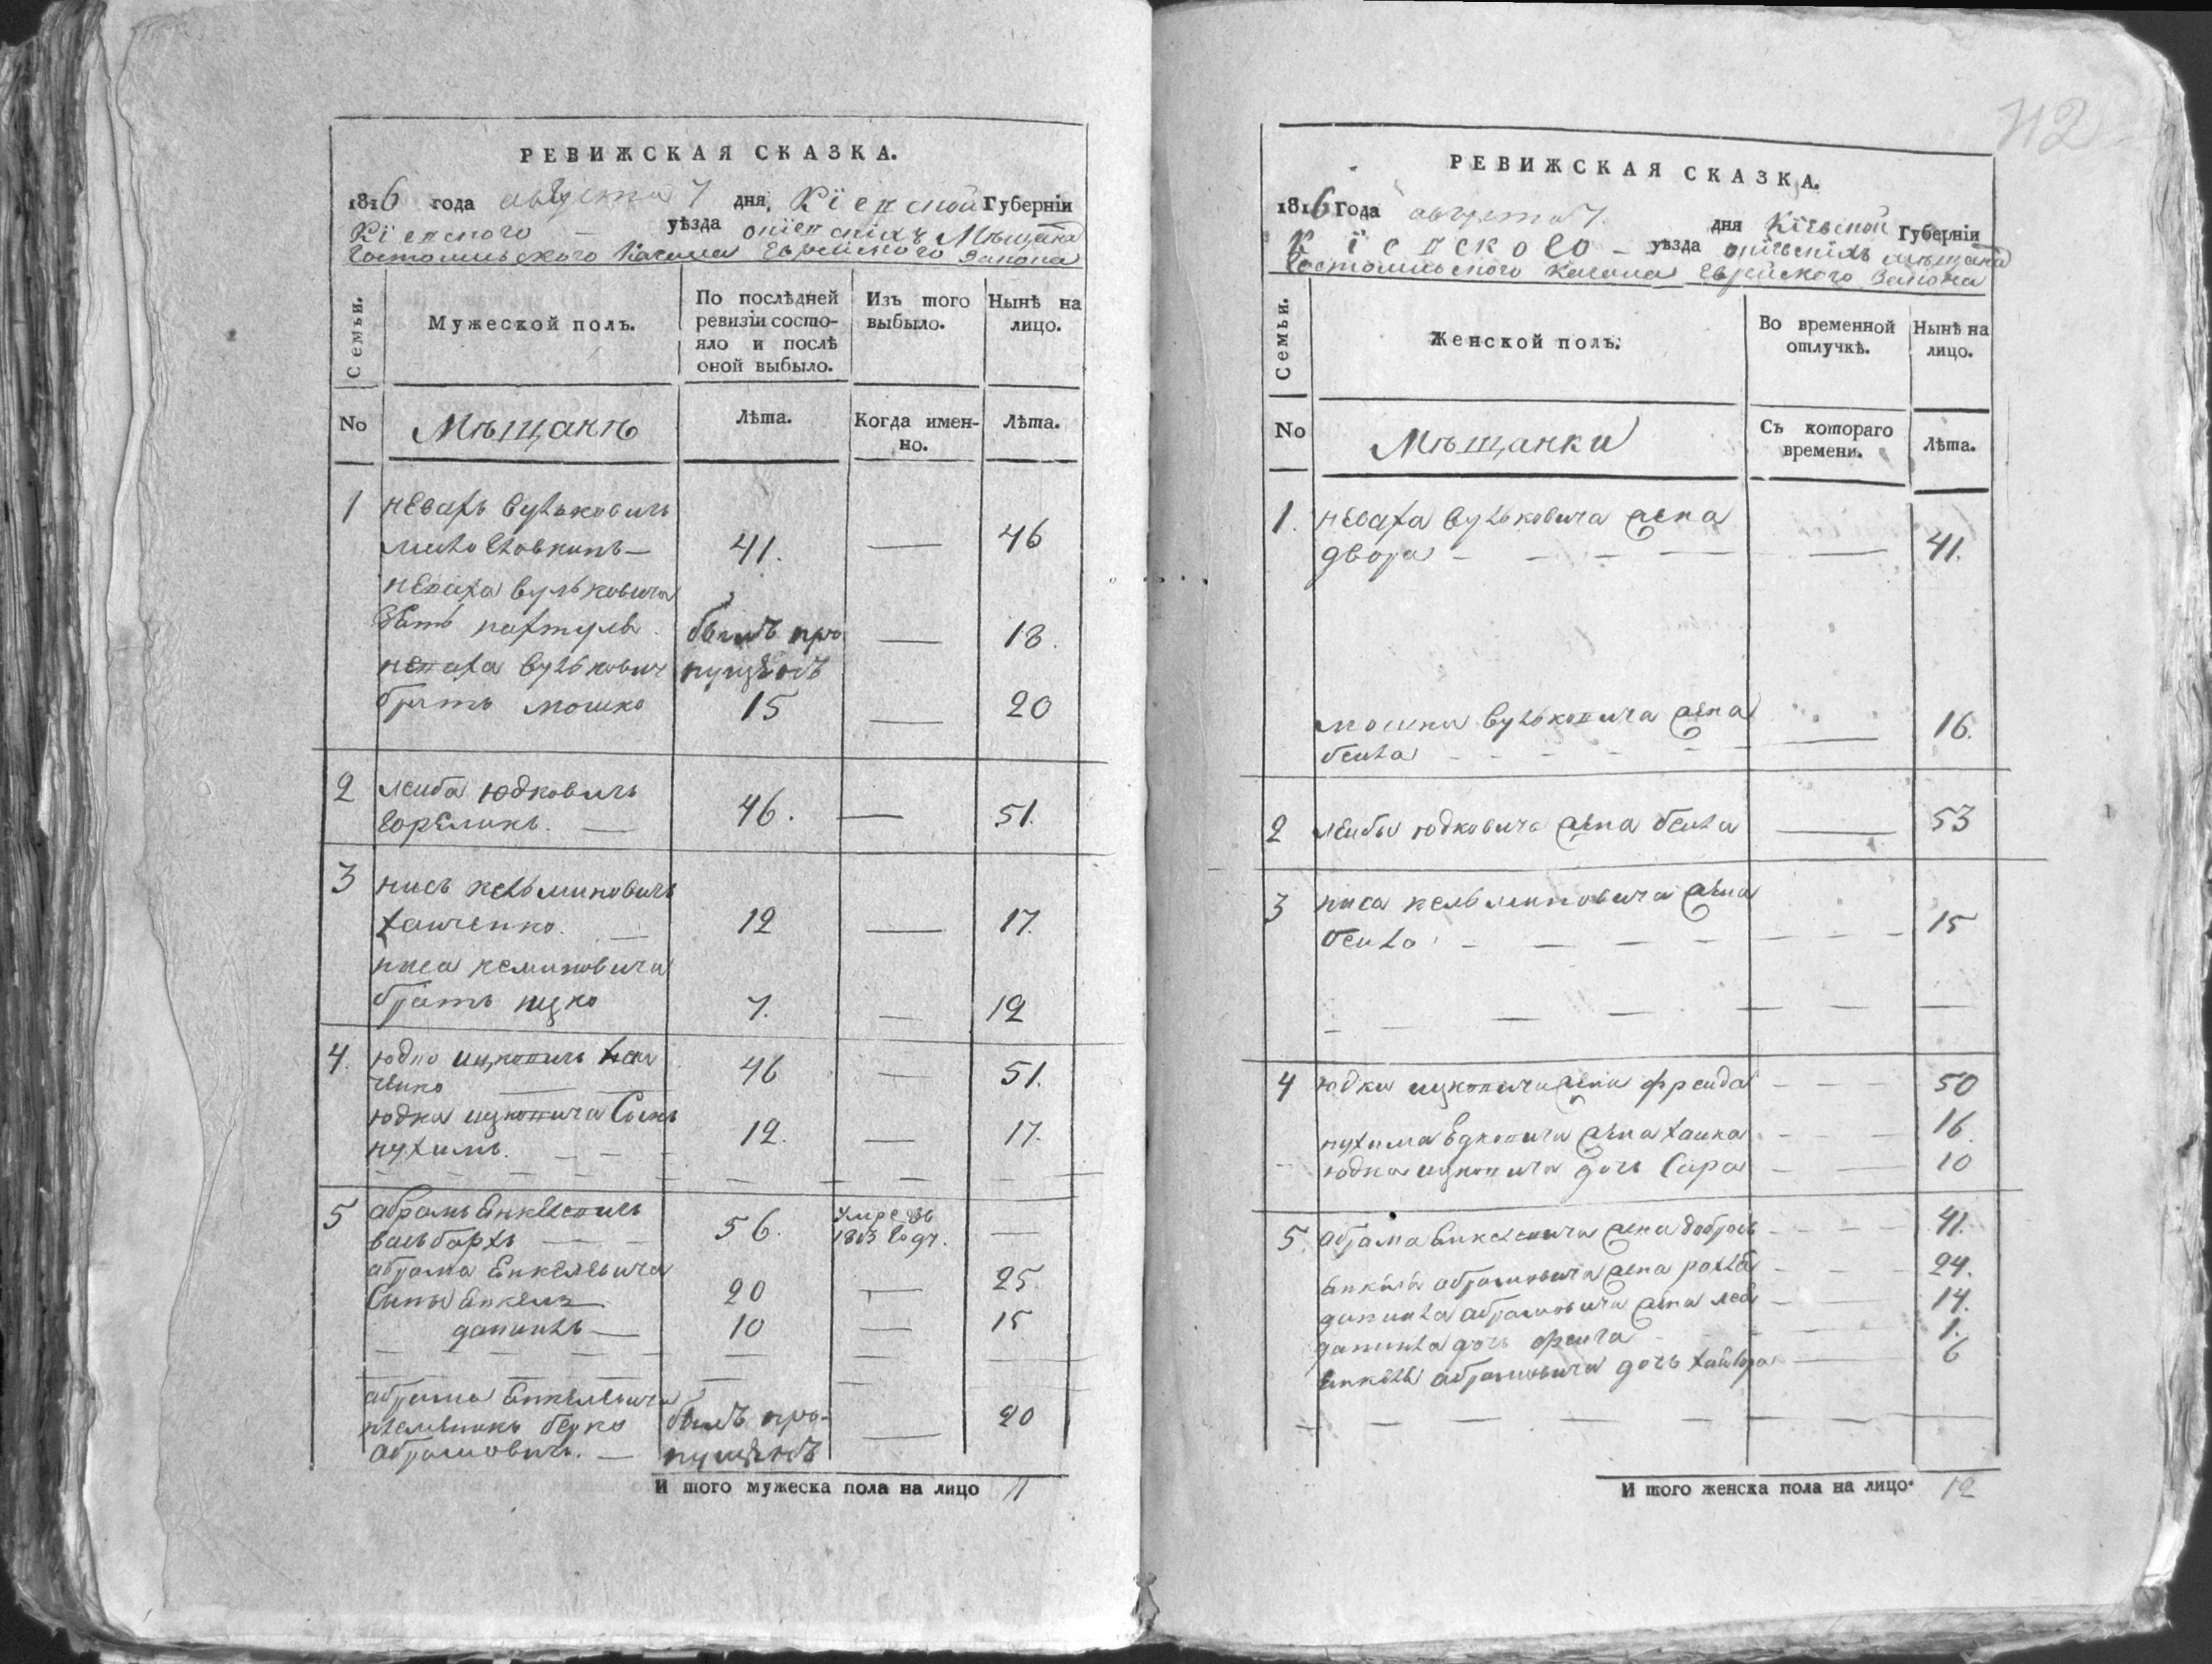 РЕВИЖСКАЯ СКАЗКА.
1816 года августа 7 дня, Кіевской Губерніи
Кіевского уѣзда Мѣщанъ
Гостомльского Кагала Еврейского Закона
Семьи.
Мужеской полъ.
По послѣдней
ревизіи состо-
яло и послѣ
оной выбыло.
Изъ того
выбыло.
Нынѣ на
лицо.
No
Мѣщанѣ
Лѣта.
Когда имен-
но.
Лѣта.
1 Невахъ Вулковичъ
41. — 46
Неваха Вульковича
зять былъ про — 18.
Неваха Вулькович пущенъ
братъ Мошко 15 — 20
2 Лейба Юдковичъ
Гореликъ. — 46. — 51.
3 Нисъ Кельминовичъ
Ханченко. — 12 — 17.
Ниса Келминовича
братъ Ицко 7. — 12
4. Юдко Ицковичъ Хан
ченко 46 — 51.
Юдка Ицковича Сынъ
Нухимъ. 12. — 17.
5 Абрамъ Енкелевичъ
56. Умре въ
1813 году. —
Абрама Енкелевича
Сынъ Енкель 20 — 25
Данилъ — 10 — 15
Абрама Енкелевича
племеникъ Берко былъ про- — 20
Абрамовичъ. — пущенъ
И того мужеска пола на лицо 11
112
РЕВИЖСКАЯ СКАЗКА.
1816 Года августа 7. дня Кіевской Губерніи
Кіевского — уѣзда мѣщанъ
Гостомльского Кагала Еврейского Закона
Семьи.
Женской полъ.
Во временной
отлучкѣ.
Нынѣ на
лицо.
No
Мѣщанки
Съ котораго
времени.
Лѣта.
1. Неваха Вульковича жена
Двора — — — — — 41.
Мошка Вульковича жена
Бейла — — — — — 16.
2 Лейбы Юдковича жена Бейла — 53
3 Ниса Кельминовича жена
Бейла — — — — 15
4 Юдки Ицковича жена Фрейда — — 50
Нухима Юдковича жена Хайка — — 16
Юдка Ицковича дочь Сура — — 10
5. Абрама Енкелевича жена Добрось — — 41.
Енкеля Абрамовича жена Рахля — — 24.
Данила Абрамовича жена Лея — — 14.
Данила дочь — 1.
Енкеля Абрамовича дочь — 6
И того женска пола на лицо. 12